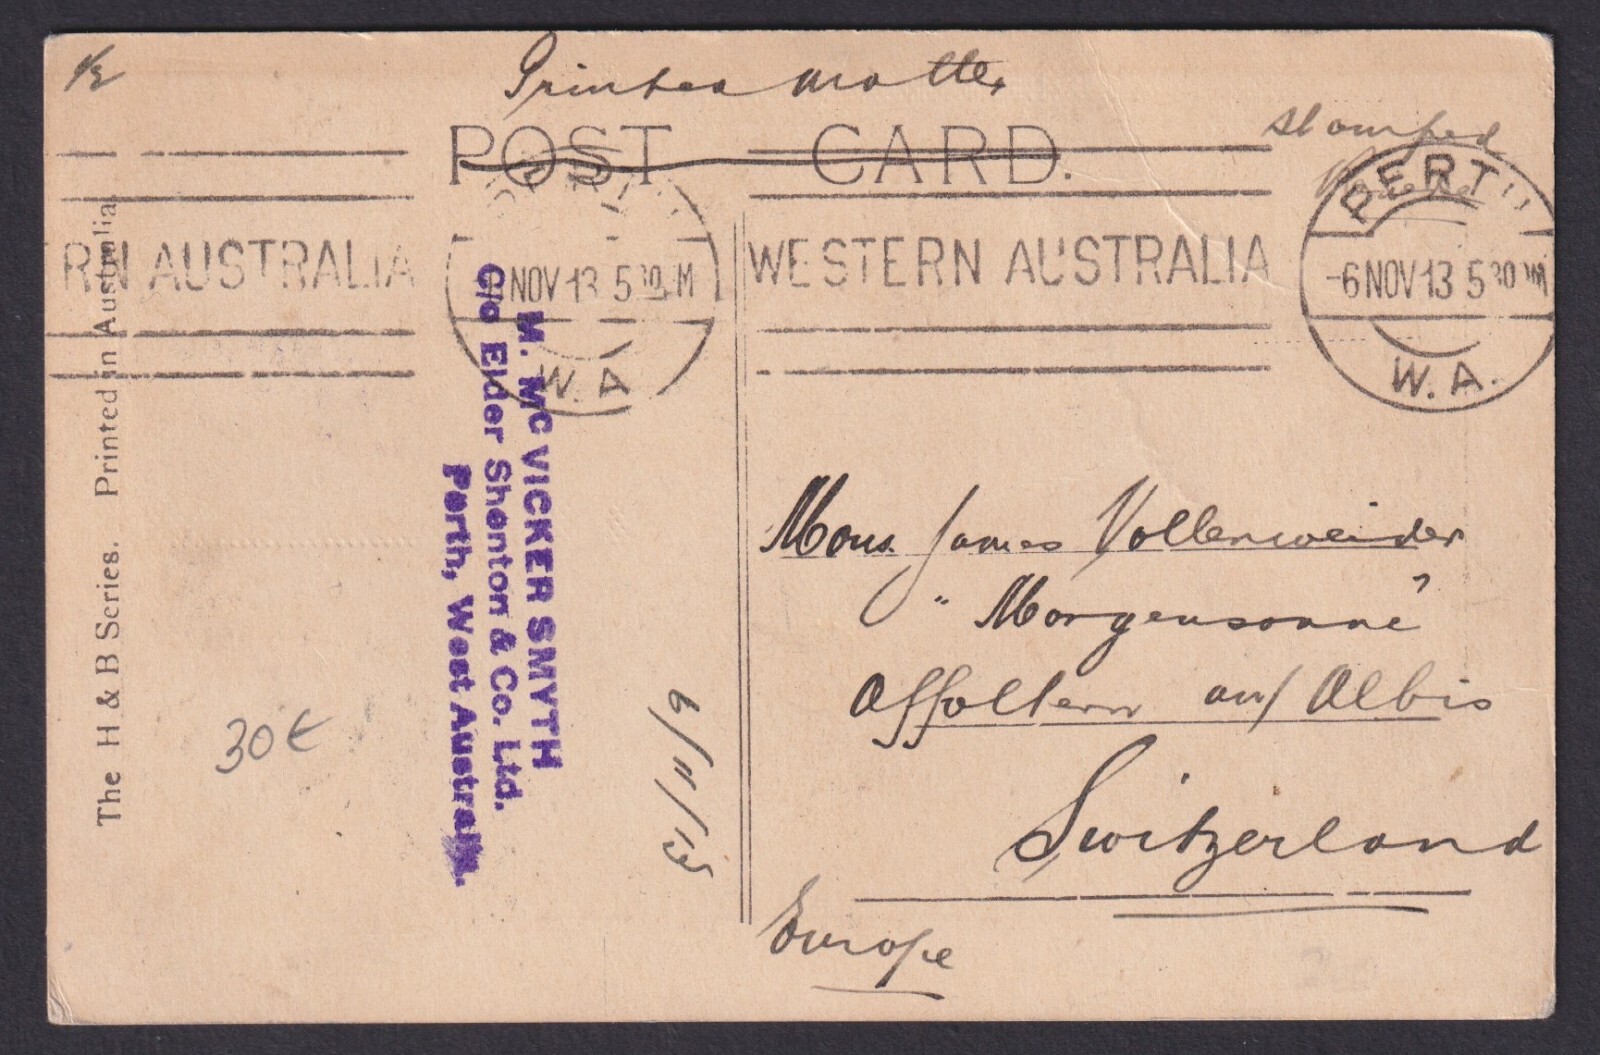 1/2
Printed Matter
POST CARD.
stamped
PERTH
RN AUSTRALIA
NOV 13 5 30 M
W.A
WESTERN AUSTRALIA
-6 NOV 13 5 30 PM
W.A.
The H & B Series. Printed in Australia.
M. MC VICKER SMYTH
C/o Elder Shenton & Co. Ltd.
Perth, West Australia.
6/11/13
30€
Mons. James Vollenweider
"Morgensonne"
Affoltern am/ Albis
Switzerland
Europe